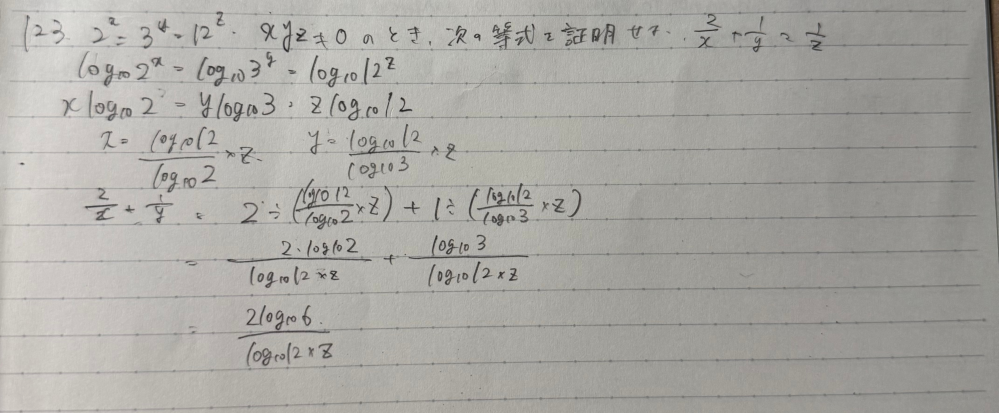 123. 2^x = 3^y = 12^z. xyz≠0 のとき、次の等式を証明せよ. 2/x + 1/y = 1/z
log₁₀2^x = log₁₀3^y = log₁₀12^z
x log₁₀2 = y log₁₀3 = z log₁₀12
x = log₁₀12/log₁₀2 × z. y = log₁₀12/log₁₀3 × z
2/x + 1/y = 2 ÷ (log₁₀12/log₁₀2 × z) + 1 ÷ (log₁₀12/log₁₀3 × z)
= 2・log₁₀2/log₁₀12 × z + log₁₀3/log₁₀12 × z
= 2log₁₀6/log₁₀12 × z